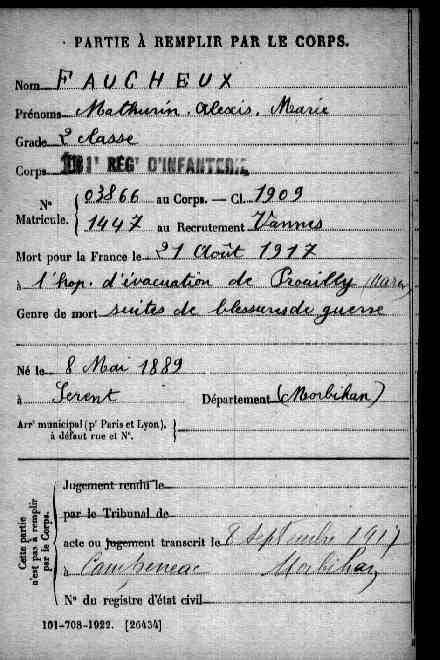 PARTIE À REMPLIR PAR LE CORPS.
Nom FAUCHEUX
Prénoms Mathurin. Alexis. Marie
Grade 2e classe
Corps 101e REGt D'INFANTERIE
No Matricule. { 03866 au Corps. — Cl. 1909
1447 au Recrutement Vannes
Mort pour la France le 21 Août 1917
à l'hop. d'évacuation de Prouilly (Marne)
Genre de mort suites de blessures de guerre
Né le 8 Mai 1889
à Serent Département (Morbihan)
Arrt municipal (pr Paris et Lyon),
à défaut rue et No.
Cette partie n'est pas à remplir par le Corps.
Jugement rendu le
par le Tribunal de
acte ou jugement transcrit le 8 septembre 1917
à Campeneac Morbihan
No du registre d'état civil
101-708-1922. [26434]